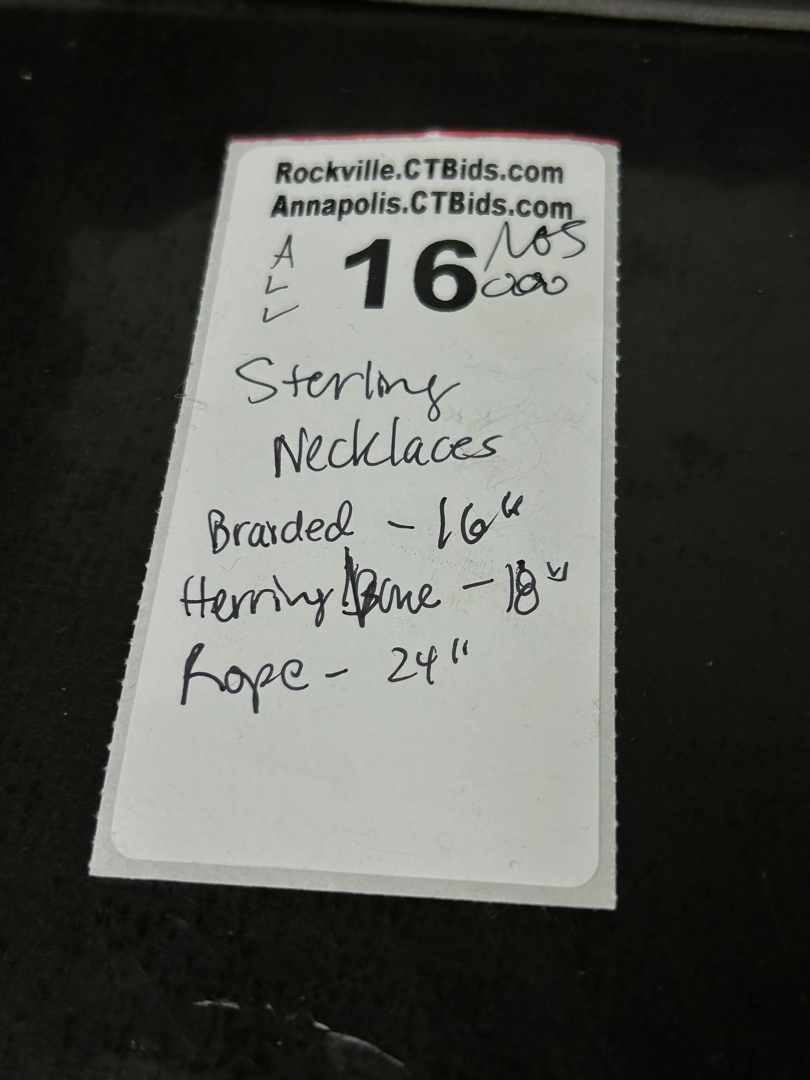 Rockville.CTBids.com
Annapolis.CTBids.com
A
L
L
16
NOS
Sterling
Necklaces
Braided - 16"
Herring Bone - 18"
Rope - 24"